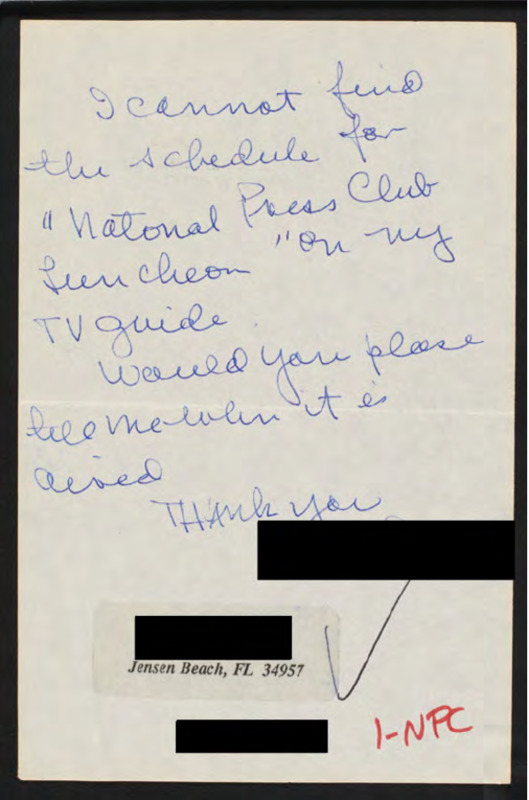 I cannot find
the schedule for
"Natonal Press Club
Luncheon" on my
TV guide.
Would you please
tell me when it is
aired
THANK you
Jensen Beach, FL 34957
1-NPC